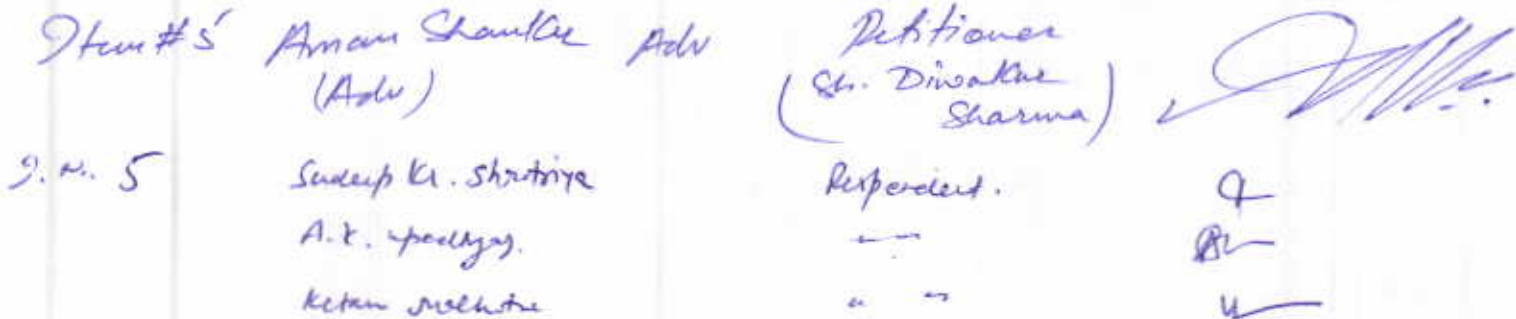 Item #5 Aman Shankar Adv Petitioner
(Adv) (Sh. Diwakar
Sharma)
I.N. 5 Sudeep Kr. Shrotriya Respondent.
A.K. Upadhyay. — " —
Ketan " "